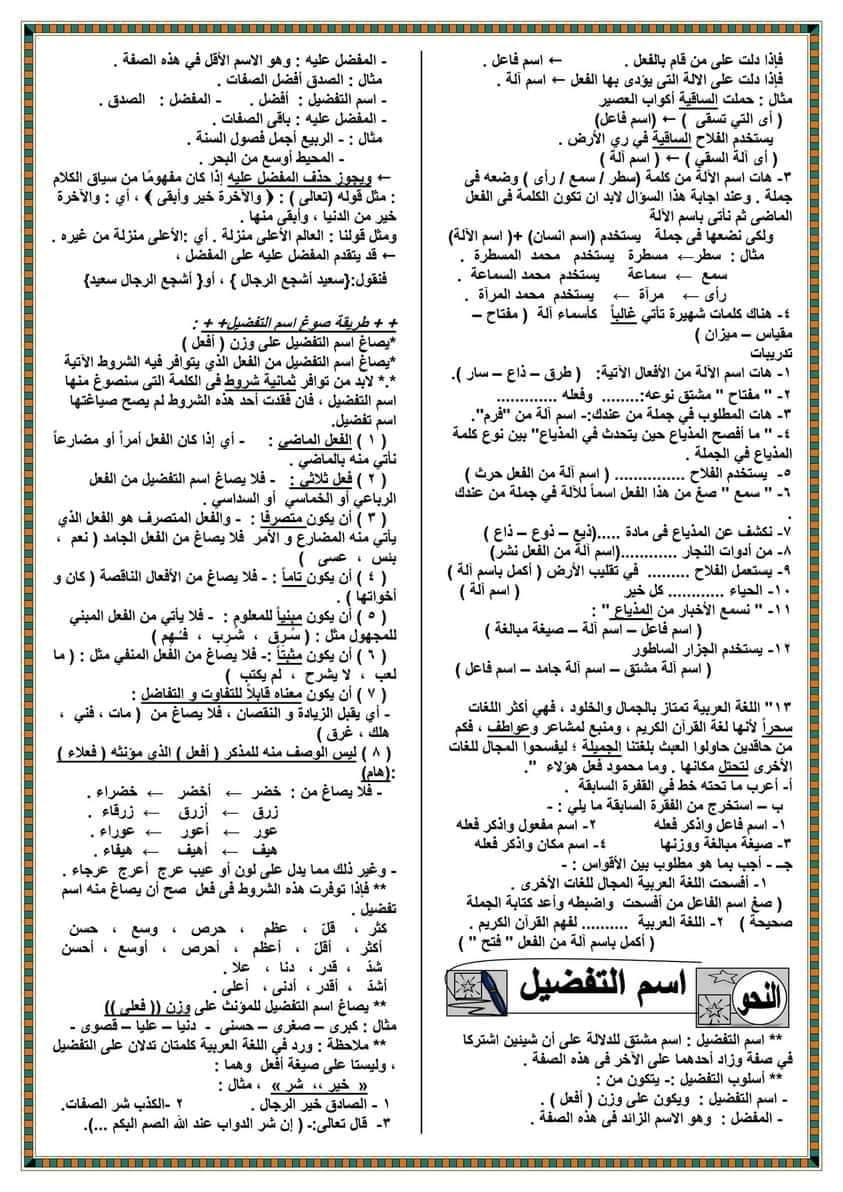 فإذا دلت على من قام بالفعل . ← اسم فاعل .
فإذا دلت على الالة التى يؤدى بها الفعل ← اسم آلة .
مثال : حملت الساقية أكواب العصير
( أى التي تسقى ) ← (اسم فاعل)
يستخدم الفلاح الساقية في ري الأرض .
( أي آلة السقي ) ← ( اسم آلة )
٣- هات اسم الآلة من كلمة (سطر / سمع / رأى ) وضعه فى
جملة . وعند اجابة هذا السؤال لابد ان تكون الكلمة فى الفعل
الماضى ثم نأتى باسم الآلة
ولكى نضعها فى جملة يستخدم (اسم انسان) +( اسم الآلة)
مثال : سطر← مسطرة يستخدم محمد المسطرة .
سمع ← سماعة يستخدم محمد السماعة .
رأى ← مرآة ← يستخدم محمد المرآة .
٤- هناك كلمات شهيرة تأتي غالباً كأسماء آلة ( مفتاح –
مقياس – ميزان )
تدريبات
١- هات اسم الآلة من الأفعال الآتية: ( طرق – ذاع – سار ).
٢- " مفتاح " مشتق نوعه:........ وفعله .............
٣- هات المطلوب في جملة من عندك:- اسم آلة من "فرم".
٤- " ما أفصح المذياع حين يتحدث في المذياع" بين نوع كلمة
المذياع في الجملة .
٥- يستخدم الفلاح ............... ( اسم آلة من الفعل حرث )
٦- " سمع " صغ من هذا الفعل اسماً للآلة في جملة من عندك
.
٧- نكشف عن المذياع فى مادة .....(ذيع – ذوع – ذاع )
٨- من أدوات النجار ............(اسم آلة من الفعل نشر)
٩- يستعمل الفلاح ......... في تقليب الأرض ( أكمل باسم آلة )
١٠- الحياء ............ كل خير ( اسم آلة )
١١- " نسمع الأخبار من المذياع " :
( اسم فاعل – اسم آلة – صيغة مبالغة )
١٢- يستخدم الجزار الساطور
( اسم آلة مشتق – اسم آلة جامد – اسم فاعل )
١٣" اللغة العربية تمتاز بالجمال والخلود ، فهي أكثر اللغات
سحراً لأنها لغة القرآن الكريم ، ومنبع لمشاعر وعواطف ، فكم
من حاقدين حاولوا العبث بلغتنا الجميلة ؛ ليفسحوا المجال للغات
الأخرى لتحتل مكانها . وما محمود فعل هؤلاء ".
أ- أعرب ما تحته خط فى الفقرة السابقة .
ب – استخرج من الفقرة السابقة ما يلي : -
١- اسم فاعل واذكر فعله ٢- اسم مفعول واذكر فعله
٣- صيغة مبالغة ووزنها ٤- اسم مكان واذكر فعله
جـ – أجب بما هو مطلوب بين الأقواس : -
١- أفسحت اللغة العربية المجال للغات الأخرى .
( صغ اسم الفاعل من أفسحت واضبطه وأعد كتابة الجملة
صحيحة ) ٢- اللغة العربية .......... لفهم القرآن الكريم .
( أكمل باسم آلة من الفعل " فتح " )
النحو
اسم التفضيل
** اسم التفضيل : اسم مشتق للدلالة على أن شيئين اشتركا
في صفة وزاد أحدهما على الآخر فى هذه الصفة .
** أسلوب التفضيل :- يتكون من :
- اسم التفضيل : ويكون على وزن ( أفعل ) .
- المفضل : وهو الاسم الزائد فى هذه الصفة .
- المفضل عليه : وهو الاسم الأقل في هذه الصفة .
مثال : الصدق أفضل الصفات .
- اسم التفضيل : أفضل . - المفضل : الصدق .
- المفضل عليه : باقى الصفات .
مثال : - الربيع أجمل فصول السنة .
- المحيط أوسع من البحر .
← ويجوز حذف المفضل عليه إذا كان مفهومًا من سياق الكلام
: مثل قوله (تعالى ) : ﴿ والآخرة خير وأبقى ﴾ ، أي : والآخرة
خير من الدنيا ، وأبقى منها .
ومثل قولنا : العالم الأعلى منزلة . أي :الأعلى منزلة من غيره .
← قد يتقدم المفضل عليه على المفضل ،
فنقول:{سعيد أشجع الرجال } ، أو{ أشجع الرجال سعيد}
+ + طريقة صوغ اسم التفضيل+ + :
*يصاغ اسم التفضيل على وزن ( أفعل )
*يصاغ اسم التفضيل من الفعل الذي يتوافر فيه الشروط الآتية
*.* لابد من توافر ثمانية شروط فى الكلمة التى سنصوغ منها
اسم التفضيل ، فان فقدت أحد هذه الشروط لم يصح صياغتها
اسم تفضيل.
( ١ ) الفعل الماضي : - أي إذا كان الفعل أمراً أو مضارعاً
نأتي منه بالماضي .
( ٢ ) فعل ثلاثي : - فلا يصاغ اسم التفضيل من الفعل
الرباعي أو الخماسي أو السداسي .
( ٣ ) أن يكون متصرفا : - والفعل المتصرف هو الفعل الذي
يأتي منه المضارع و الأمر فلا يصاغ من الفعل الجامد ( نعم ،
بئس ، عسى )
( ٤ ) أن يكون تاماً : - فلا يصاغ من الأفعال الناقصة ( كان و
أخواتها ) .
( ٥ ) أن يكون مبنياً للمعلوم : - فلا يأتي من الفعل المبني
للمجهول مثل : ( سُرِق ، شُرِب ، فُهِم )
( ٦ ) أن يكون مثبتاً :- فلا يصاغ من الفعل المنفي مثل : ( ما
لعب ، لا يشرح ، لم يكتب )
( ٧ ) أن يكون معناه قابلاً للتفاوت و التفاضل :
- أي يقبل الزيادة و النقصان ، فلا يصاغ من ( مات ، فني ،
هلك ، غرق )
( ٨ ) ليس الوصف منه للمذكر ( أفعل ) الذي مؤنثه ( فعلاء )
:(هام)
- فلا يصاغ من : خضر ← أخضر ← خضراء .
زرق ← أزرق ← زرقاء .
عور ← أعور ← عوراء .
هيف ← أهيف ← هيفاء .
- وغير ذلك مما يدل على لون أو عيب عرج أعرج عرجاء .
** فإذا توفرت هذه الشروط فى فعل صح أن يصاغ منه اسم
تفضيل .
كثر ، قلّ ، عظم ، حرص ، وسع ، حسن
أكثر ، أقلّ ، أعظم ، أحرص ، أوسع ، أحسن
شذ ، قدر ، دنا ، علا .
أشذ ، أقدر ، أدنى ، أعلى .
** يصاغ اسم التفضيل للمؤنث على وزن (( فعلى ))
مثال : كبرى – صغرى – حسنى - دنيا – عليا – قصوى -
** ملاحظة : ورد في اللغة العربية كلمتان تدلان على التفضيل
، وليستا على صيغة أفعل وهما :
« خير ،، شر » ، مثال :
١ - الصادق خير الرجال . ٢ -الكذب شر الصفات.
٣- قال تعالى:- ( إن شر الدواب عند الله الصم البكم ...).